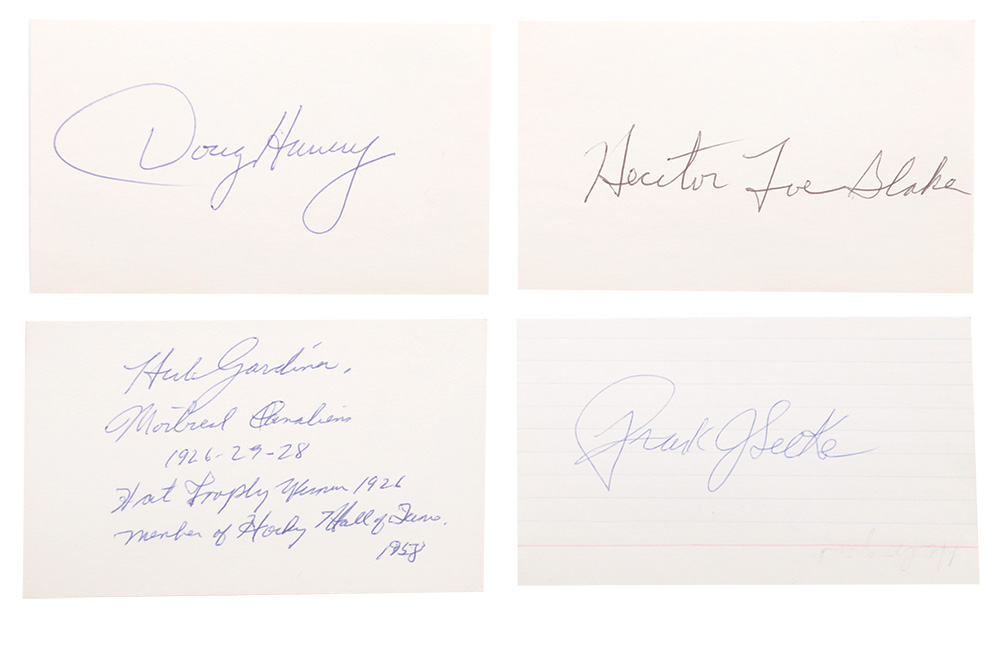 Doug Harvey
Hector Toe Blake
Herb Gardiner,
Montreal Canadiens
1926-27-28
Hart Trophy Winner 1926
member of Hockey Hall of Fame.
1958
Frank J Selke